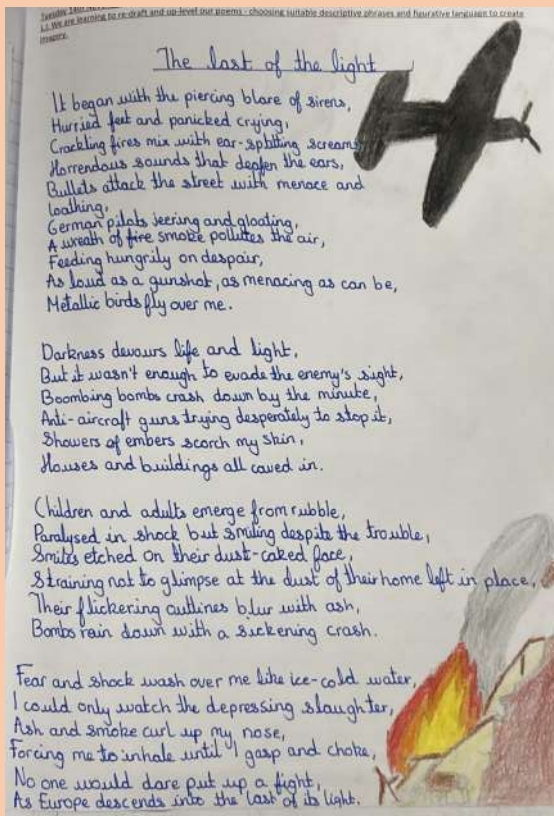 L.I. We are learning to re-draft and up-level our poems - choosing suitable descriptive phrases and figurative language to create
imagery.
The last of the light
It began with the piercing blare of sirens,
Hurried feet and panicked crying,
Crackling fires mix with ear-splitting screams,
Horrendous sounds that deafen the ears,
Bullets attack the street with menace and
loathing,
German pilots jeering and gloating,
A wreath of fire smoke pollutes the air,
Feeding hungrily on despair,
As loud as a gunshot, as menacing as can be,
Metallic birds fly over me.
Darkness devours life and light,
But it wasn't enough to evade the enemy's sight,
Boombing bombs crash down by the minute,
Anti-aircraft guns trying desperately to stop it,
Showers of embers scorch my skin,
Houses and buildings all caved in.
Children and adults emerge from rubble,
Paralysed in shock but smiling despite the trouble,
Smiles etched on their dust-caked face,
Straining not to glimpse at the dust of their home left in place,
Their flickering outlines blur with ash,
Bombs rain down with a sickening crash.
Fear and shock wash over me like ice-cold water,
I could only watch the depressing slaughter,
Ash and smoke curl up my nose,
Forcing me to inhale until I gasp and choke,
No one would dare put up a fight,
As Europe descends into the last of its light.